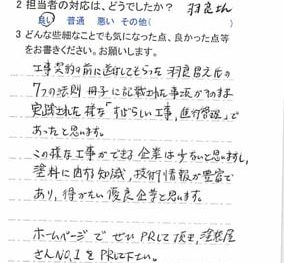 2 担当者の対応は、どうでしたか？ 羽良さん
良い 普通 悪い その他(
3 どんな些細なことでも気になった点、良かった点等
をお書きください。お願いします。
工事契約の前に送付してもらった羽良智文氏の
7つの法則冊子に記載された事項がそのまま
実践された様な「すばらしい工事,進行管理」で
あったと思います。
この様な工事ができる企業は少ないと思いますし,
塗料に関する知識,技術情報が豊富で
あり,得がたい優良企業と思います。
ホームページで ぜひPRして頂き,塗装屋
さんNO,1をPRして下さい。